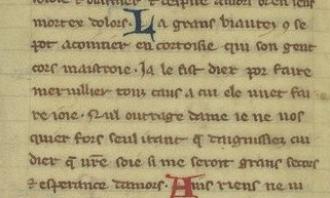 mortex dolors. La grans biautez q se
pot acointier en cortoisie qui son gent
cors maistroie. Ja le fist diex por faire
merveillier touz ceus a cui ele vuet fai
re ioie. Nul outrage dame ie ne vos
quier fors seul itant q daignissiez cui
dier q vre soie si me seroit grans secors
& esperance damors. Ains riens ne vi